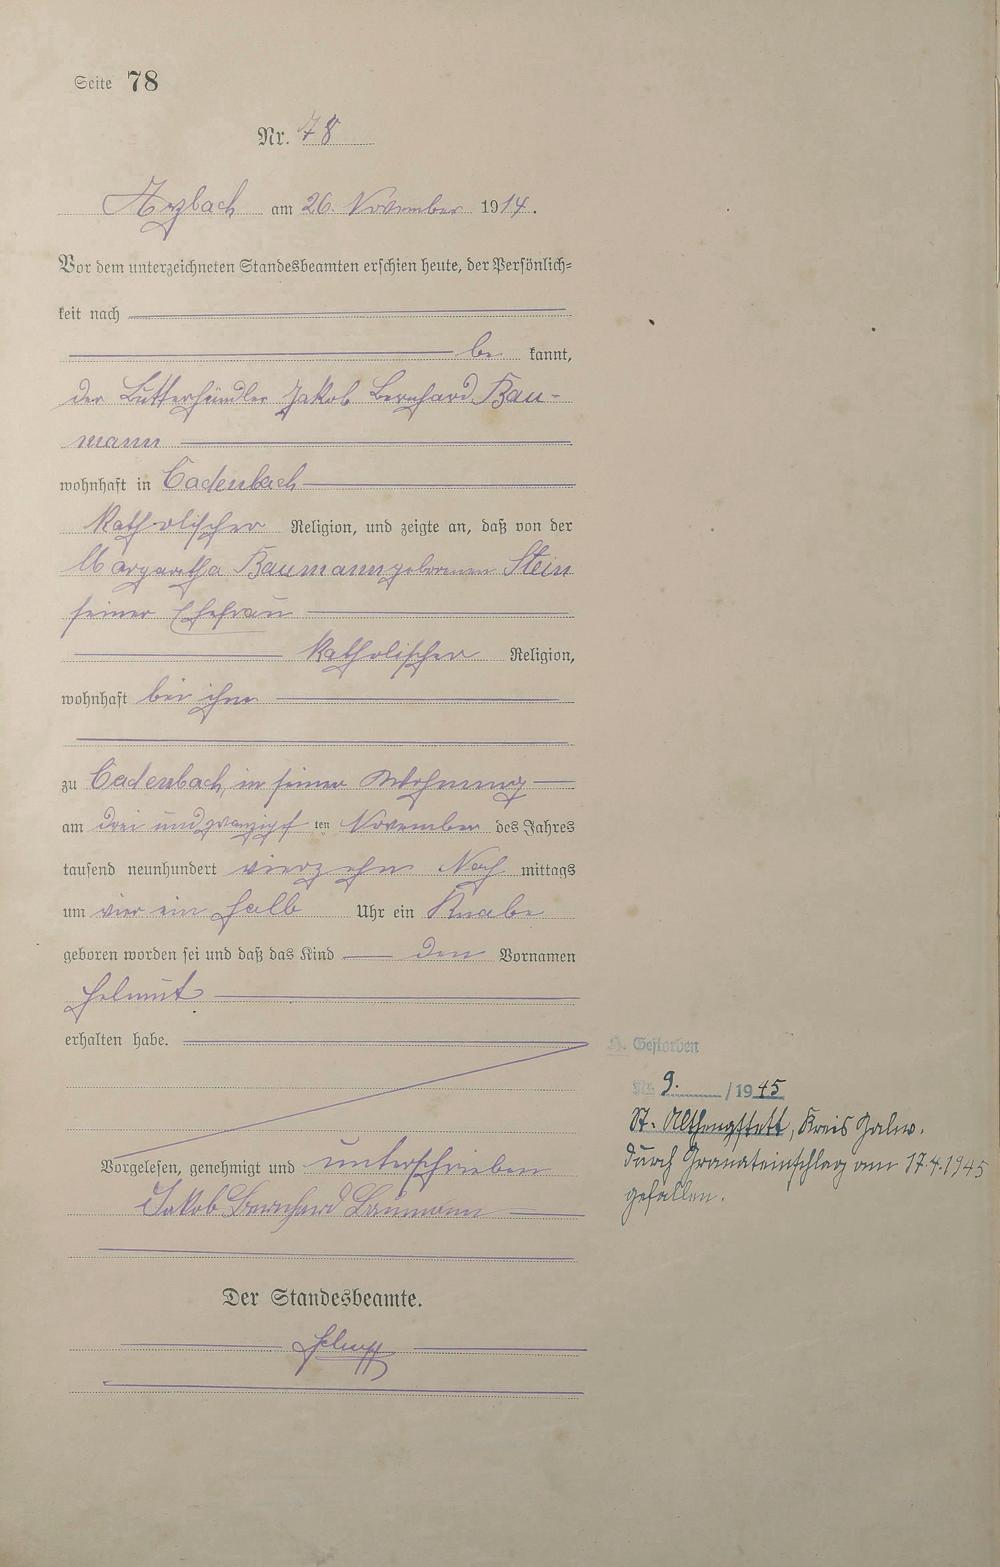 Seite 78
Nr. 78
Arzbach am 26. November 1914.
Vor dem unterzeichneten Standesbeamten erschien heute, der Persönlich=
keit nach
be kannt,
der Butterhändler Jakob Bernhard Bau-
mann
wohnhaft in Cadenbach
katholischer Religion, und zeigte an, daß von der
Margaretha Baumann geborenen Stein
seiner Ehefrau
katholischer Religion,
wohnhaft bei ihm
zu Cadenbach, in seiner Wohnung
am drei und zwanzigsten November des Jahres
tausend neunhundert vierzehn Nach mittags
um vier ein halb Uhr ein Knabe
geboren worden sei und daß das Kind den Vornamen
Helmut
erhalten habe.
H. Gestorben
Nr. 9. / 1945
St. Althengstett, Kreis Calw.
durch Granateinschlag am 17.4.1945
gefallen.
Vorgelesen, genehmigt und unterschrieben
Jakob Bernhard Baumann
Der Standesbeamte.